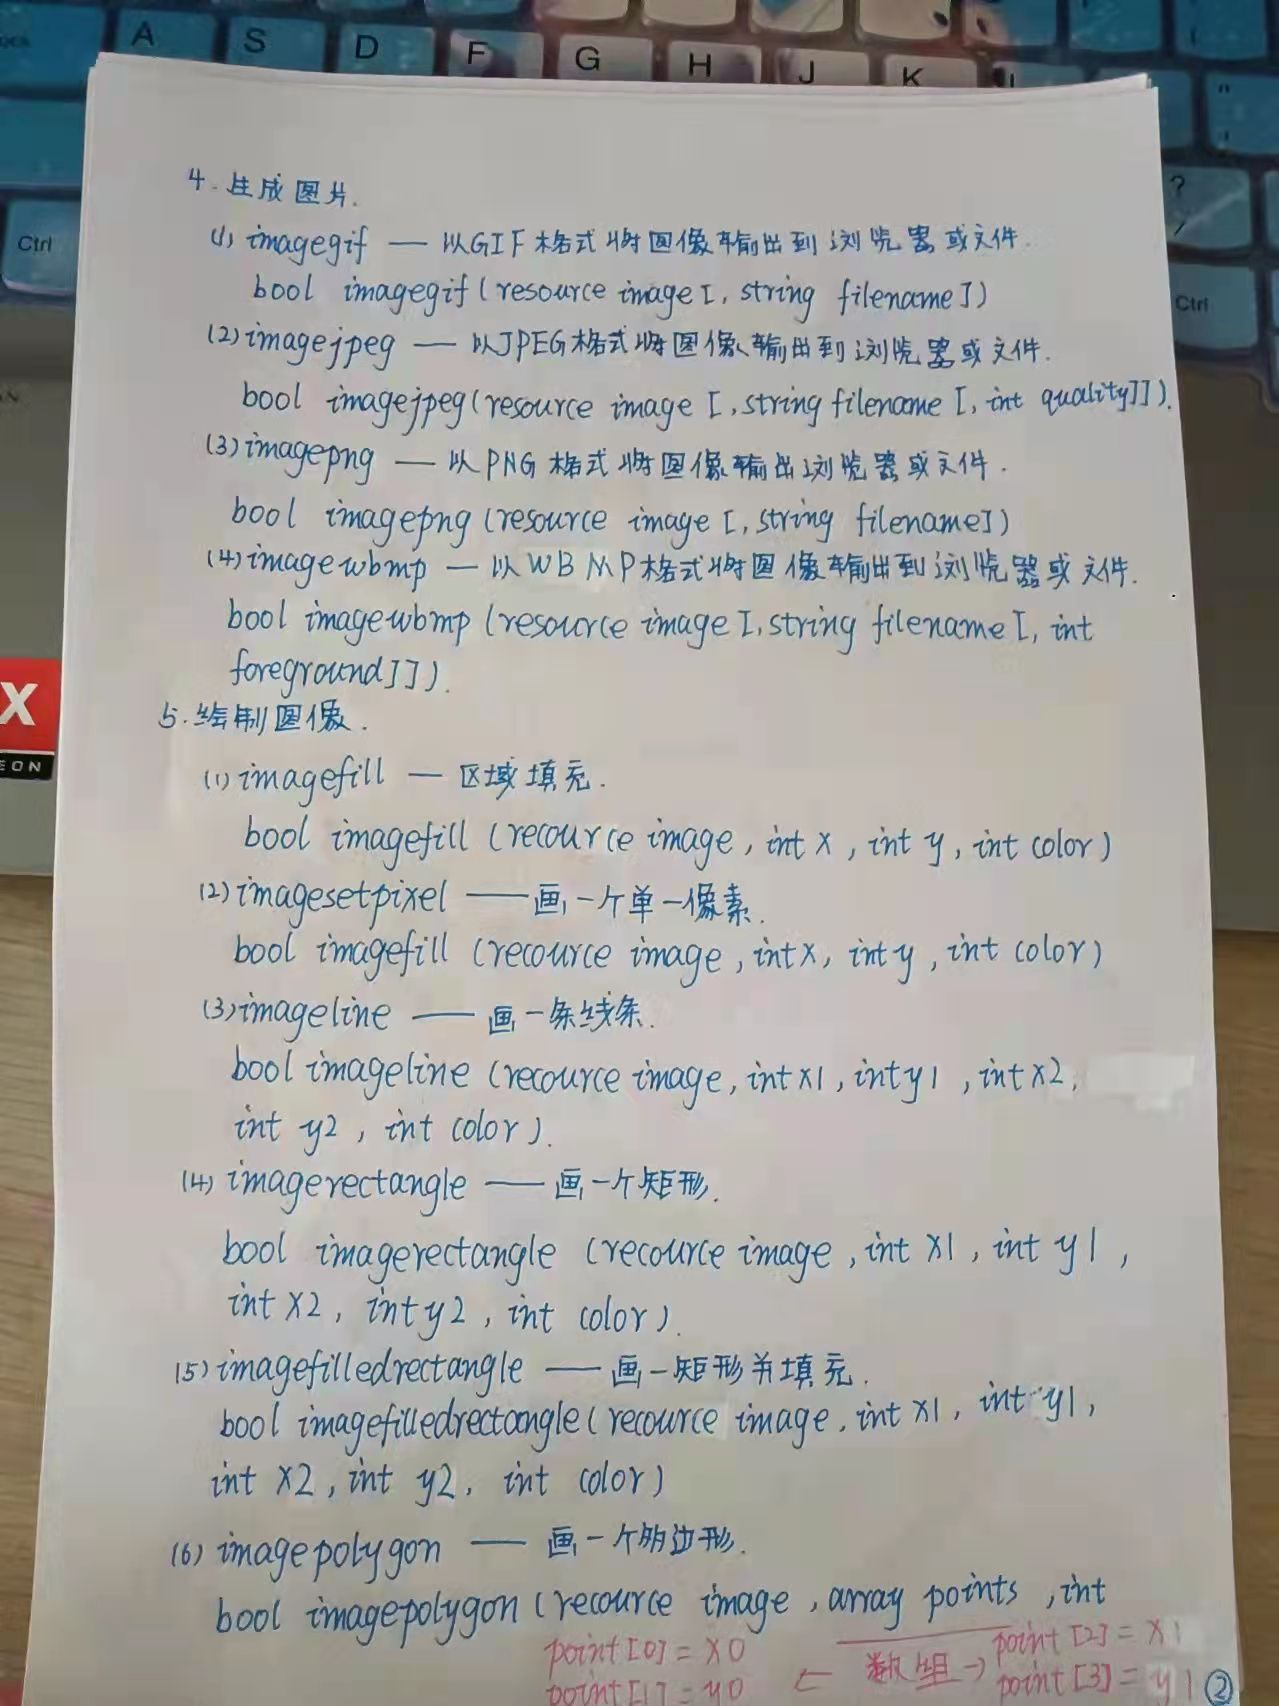 A S D F G H J K L
Ctrl
?
/
Ctrl
X
EON
4. 生成图片.
(1) imagegif — 以GIF格式将图像输出到浏览器或文件.
bool imagegif (resource image [, string filename])
(2) imagejpeg — 以JPEG格式将图像输出到浏览器或文件.
bool imagejpeg (resource image [, string filename [, int quality]]).
(3) imagepng — 以PNG格式将图像输出浏览器或文件.
bool imagepng (resource image [, string filename])
(4) imagewbmp — 以WBMP格式将图像输出到浏览器或文件.
bool imagewbmp (resource image [, string filename [, int
foreground]]).
5. 绘制图像.
(1) imagefill — 区域填充.
bool imagefill (recource image, int x, int y, int color)
(2) imagesetpixel —— 画一个单一像素.
bool imagefill (recource image, int x, int y, int color)
(3) imageline —— 画一条线条.
bool imageline (recource image, int x1, int y1, int x2,
int y2, int color).
(4) imagerectangle —— 画一个矩形.
bool imagerectangle (recource image, int x1, int y1,
int x2, int y2, int color).
(5) imagefilledrectangle —— 画一矩形并填充.
bool imagefilledrectangle (recource image, int x1, int y1,
int x2, int y2, int color)
(6) imagepolygon —— 画一个多边形.
bool imagepolygon (recource image, array points, int
point[0] = x0 ← 数组 → point[2] = x1
point[1] = y0 point[3] = y1
②